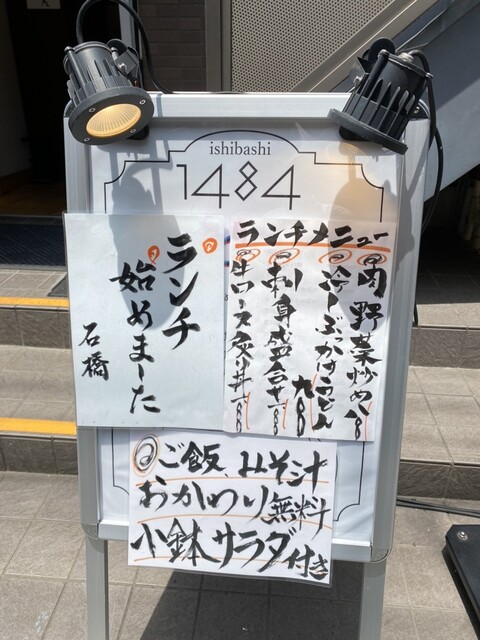 ishibashi
1484
ランチ
始めました
石橋
ランチメニュー
肉野菜炒め
冷しぶっかけうどん
刺身盛合せ
牛ロース炙り丼
ご飯、みそ汁
おかわり無料
小鉢サラダ付き